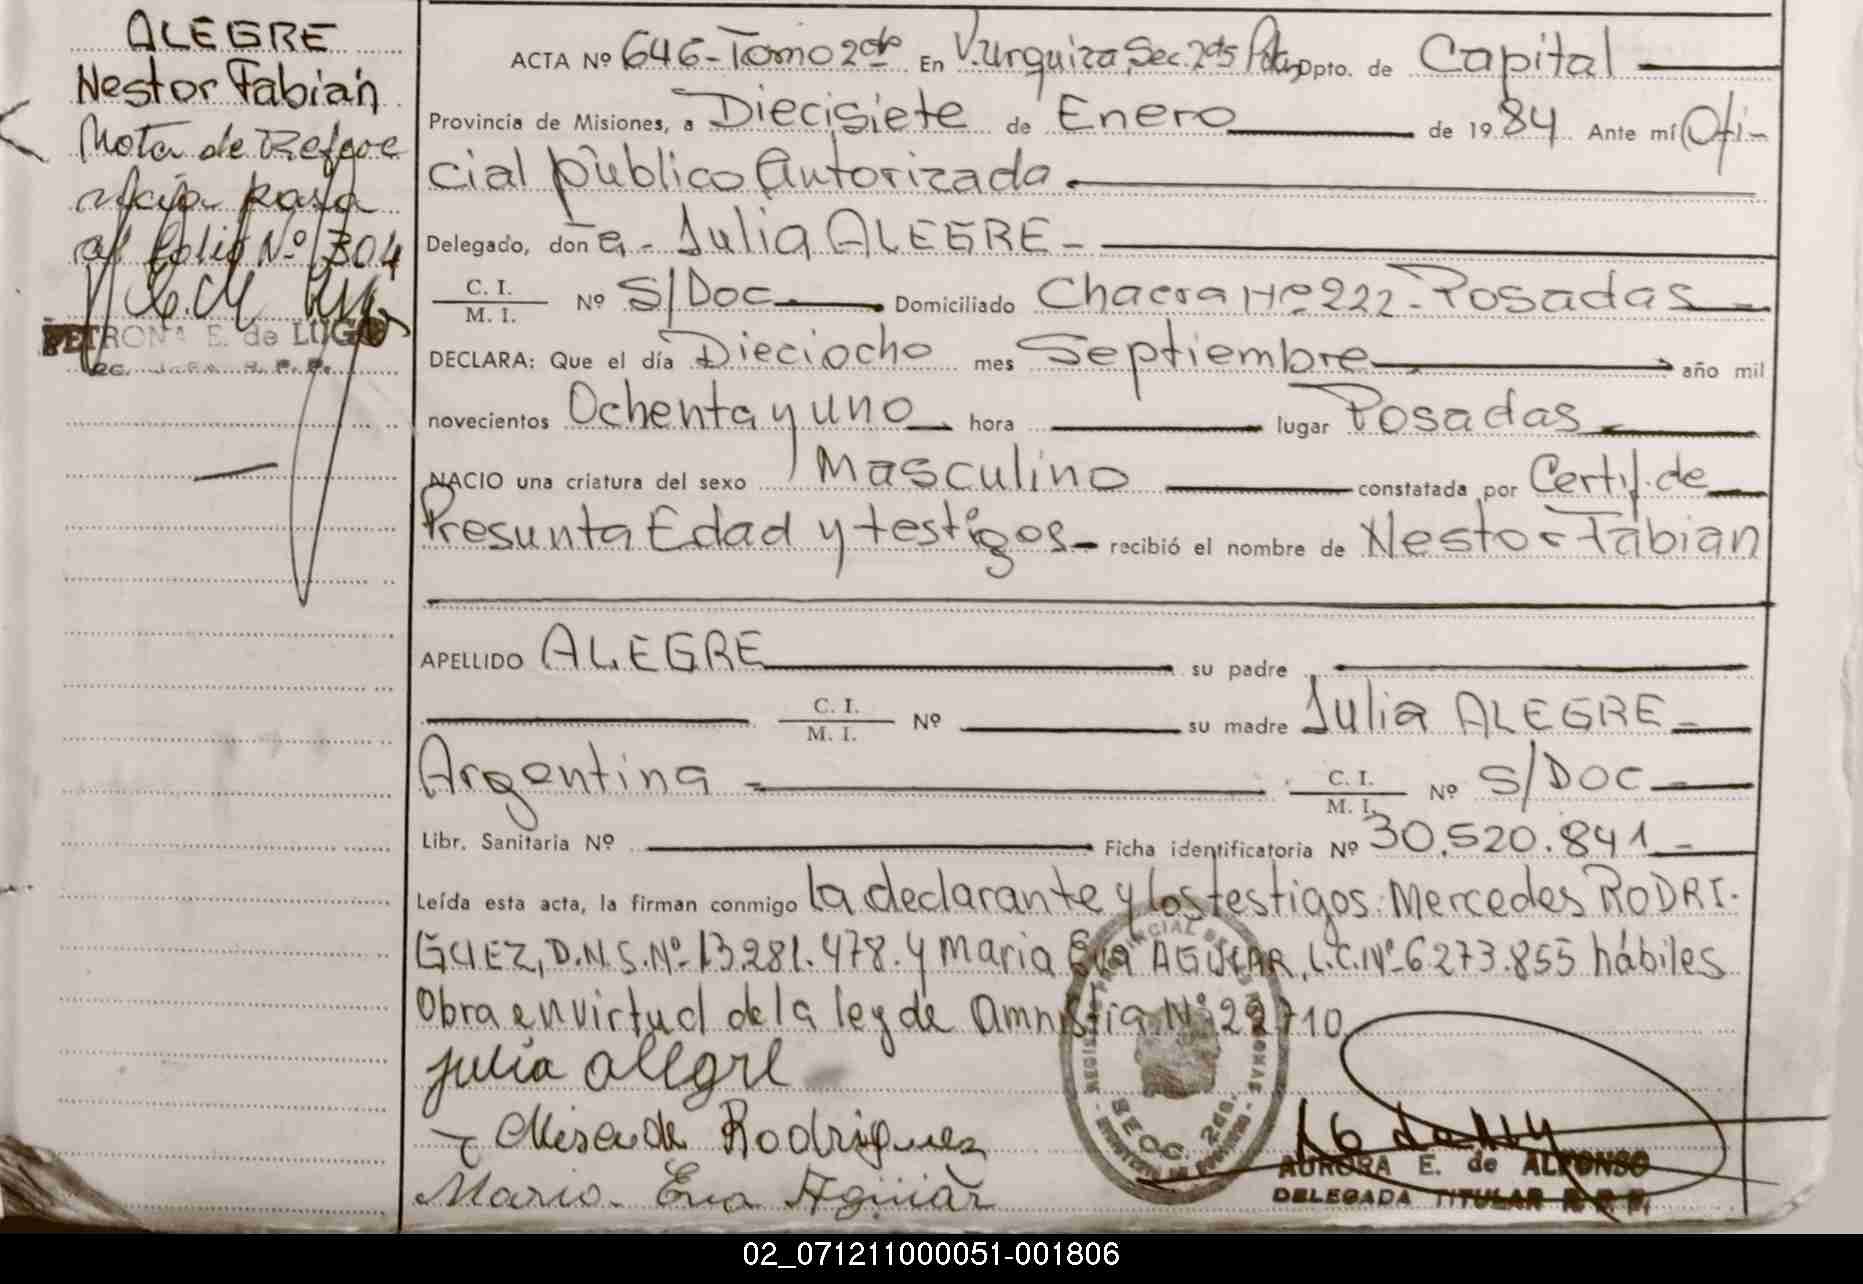 ALEGRE
Nestor Fabián
Nota de Refere
ncia pasa
al folio Nº 304
PETRONA E. de LUGO
ACTA Nº 646-Tomo 2do En V.Urquiza, Sec. 2da Dpto. de Capital
Provincia de Misiones, a Diecisiete de Enero de 1984 Ante mí Ofi-
cial público Autorizada
Delegado, don a - Julia ALEGRE -
C. I.
M. I. Nº S/Doc. Domiciliado Chacra Nº 222 - Posadas -
DECLARA: Que el día Dieciocho mes Septiembre año mil
novecientos Ochenta y uno hora lugar Posadas
NACIO una criatura del sexo Masculino constatada por Certif. de
Presunta Edad y testigos - recibió el nombre de Nestor Fabian
APELLIDO ALEGRE su padre
C. I.
M. I. Nº su madre Julia ALEGRE -
Argentina - C. I.
M. I. Nº S/DOC -
Libr. Sanitaria Nº Ficha identificatoria Nº 30.520.841 -
Leída esta acta, la firman conmigo la declarante y los testigos: Mercedes RODRI-
GUEZ, D.N.S.Nº 13.281.478. y Maria Eva AGUIAR, L.C.Nº 6273.855 hábiles
Obra en virtud de la ley de Amnistia Nº 22710
julia allegre
Rodriguez
Maria Eva Aguiar
REGISTRO PROVINCIAL DE LAS PERSONAS
SECC. 2da.
AURORA E. de ALFONSO
DELEGADA TITULAR R. P. P.
02_071211000051-001806